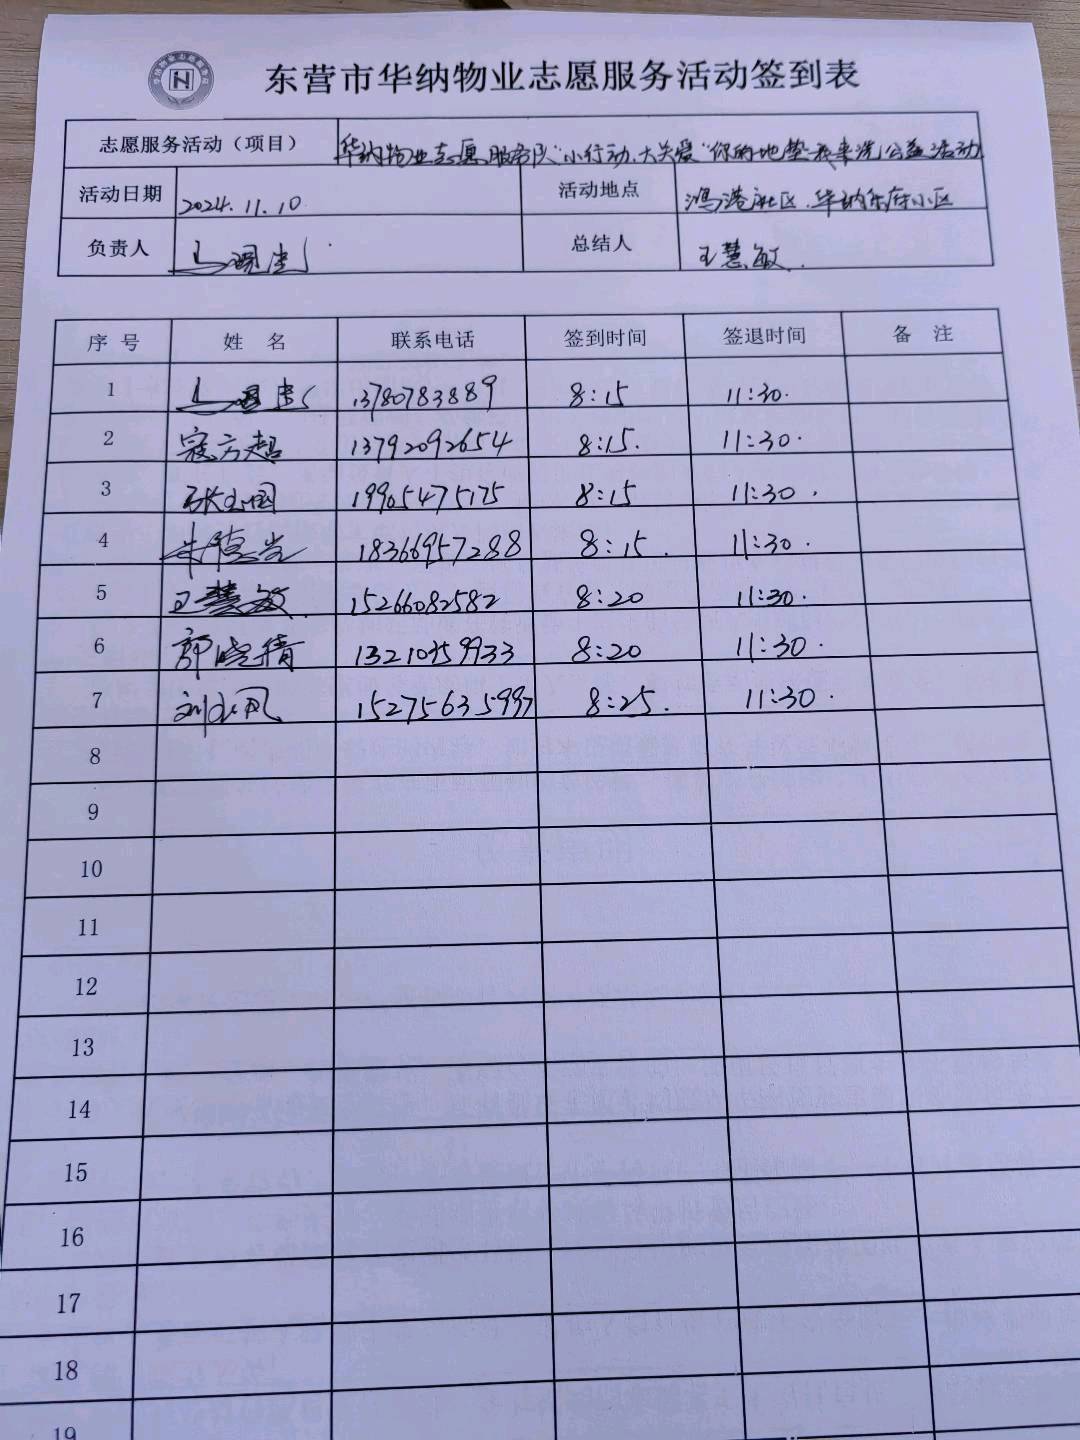 东营市华纳物业志愿服务活动签到表
志愿服务活动（项目） 华纳物业志愿服务队"小行动.大关爱"你的地垫我来洗公益活动
活动日期 2024.11.10 活动地点 鸿港社区.华纳东府小区
负责人 总结人 王慧敏.
序号 姓名 联系电话 签到时间 签退时间 备注
1 13780783889 8:15 11:30.
2 寇方超 13792092654 8:15. 11:30.
3 张玉国 19905475175 8:15 11:30.
4 18366957288 8:15. 11:30.
5 王慧敏. 15266082582 8:20 11:30.
6 郭晓倩 8:20 11:30.
7 15275635997 8:25. 11:30.
8
9
10
11
12
13
14
15
16
17
18
19